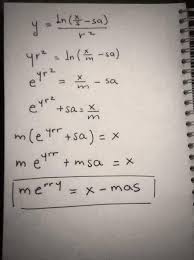 y = ln(x/m - sa)/r²
yr² = ln(x/m - sa)
e^yr² = x/m - sa
e^yr² + sa = x/m
m(e^yrr + sa) = x
me^yrr + msa = x
me^rry = x - mas